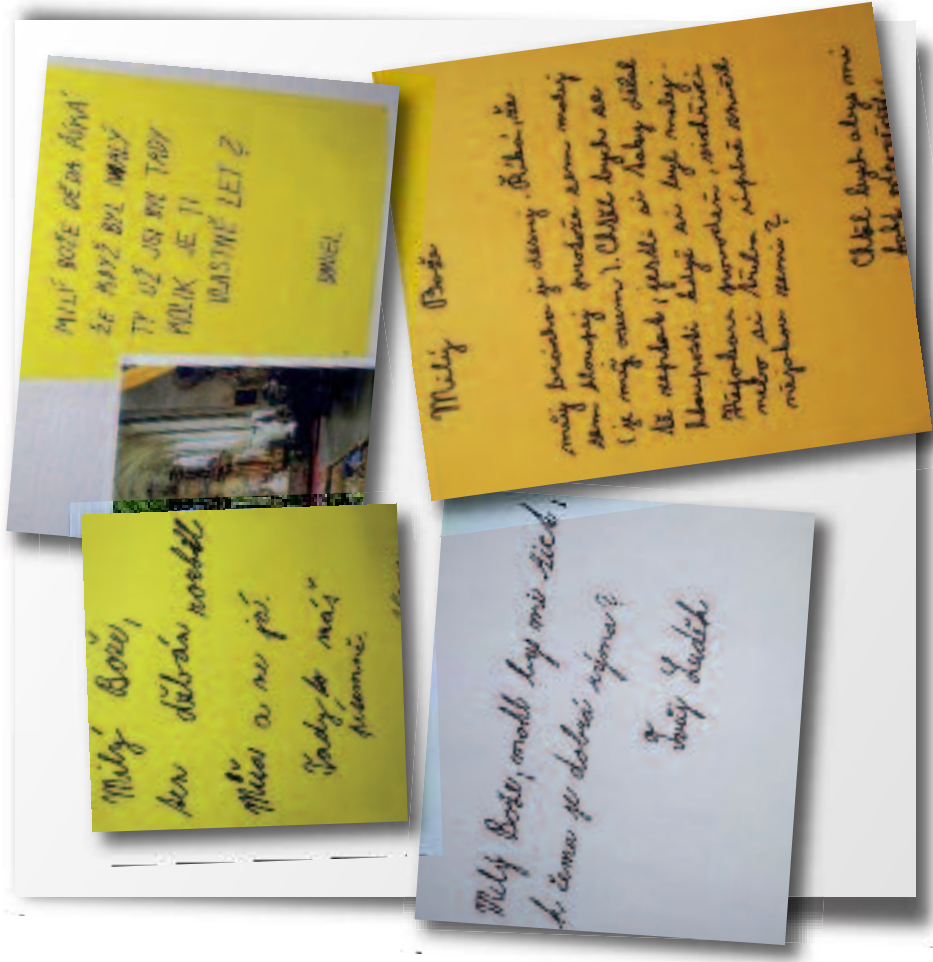 MILÝ BOŽE DĚDA ŘÍKÁ
ŽE KDYŽ BYL MALÝ
TY UŽ JSI BYL TADY
KOLIK JE TI
VLASTNĚ LET?
DANIEL
Milý Bože
můj brácho je divný. Říká, že
sem hloupej protože sem malej
(je mu osem). Chtěl bych se
tě zeptat, jestli si taky dělal
hlouposti když si byl malej.
potvoru
nebo si třeba úplně zničil
nějakou zemi?
Chtěl bych aby mi
Milý Bože,
ten džbán rozbil
Míša a ne já.
Tady to máš
písemně
Milý Bože, mohl bys mi říct,
k čemu je dobrá rýma?
Tvůj Luděk